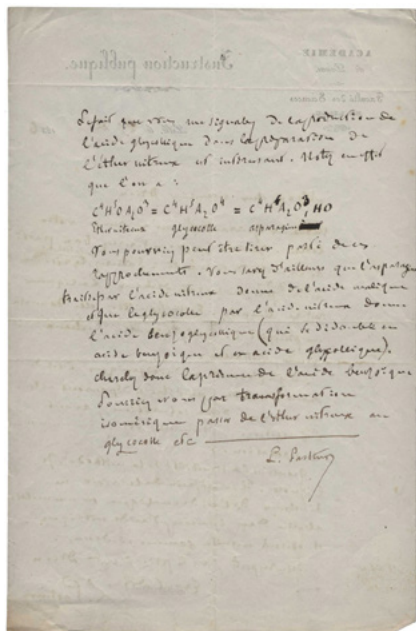 ACADEMIE
Instruction publique.
Le fait que vous me signalez de la production de
l'acide glycollique dans la préparation de
l'Ether nitreux est intéressant. Notez en effet
que l'on a :
C⁴H⁵OAzO³ = C⁴H⁵AzO⁴ = C⁴H⁴AzO³, HO
Ether nitreux glycocolle asparagine
Vous pourriez peut être tirer parti de ces
rapprochements. Vous savez d'ailleurs que l'asparagine
traitée par l'acide nitreux donne de l'acide malique
et que le glycocolle par l'acide nitreux donne
l'acide benzoglycollique (qui se dédouble en
acide benzoïque et en acide glycollique).
Cherchez donc la présence de l'acide benzoïque
Pourriez vous par transformation
isomérique passer de l'Ether nitreux au
glycocolle etc
L. Pasteur